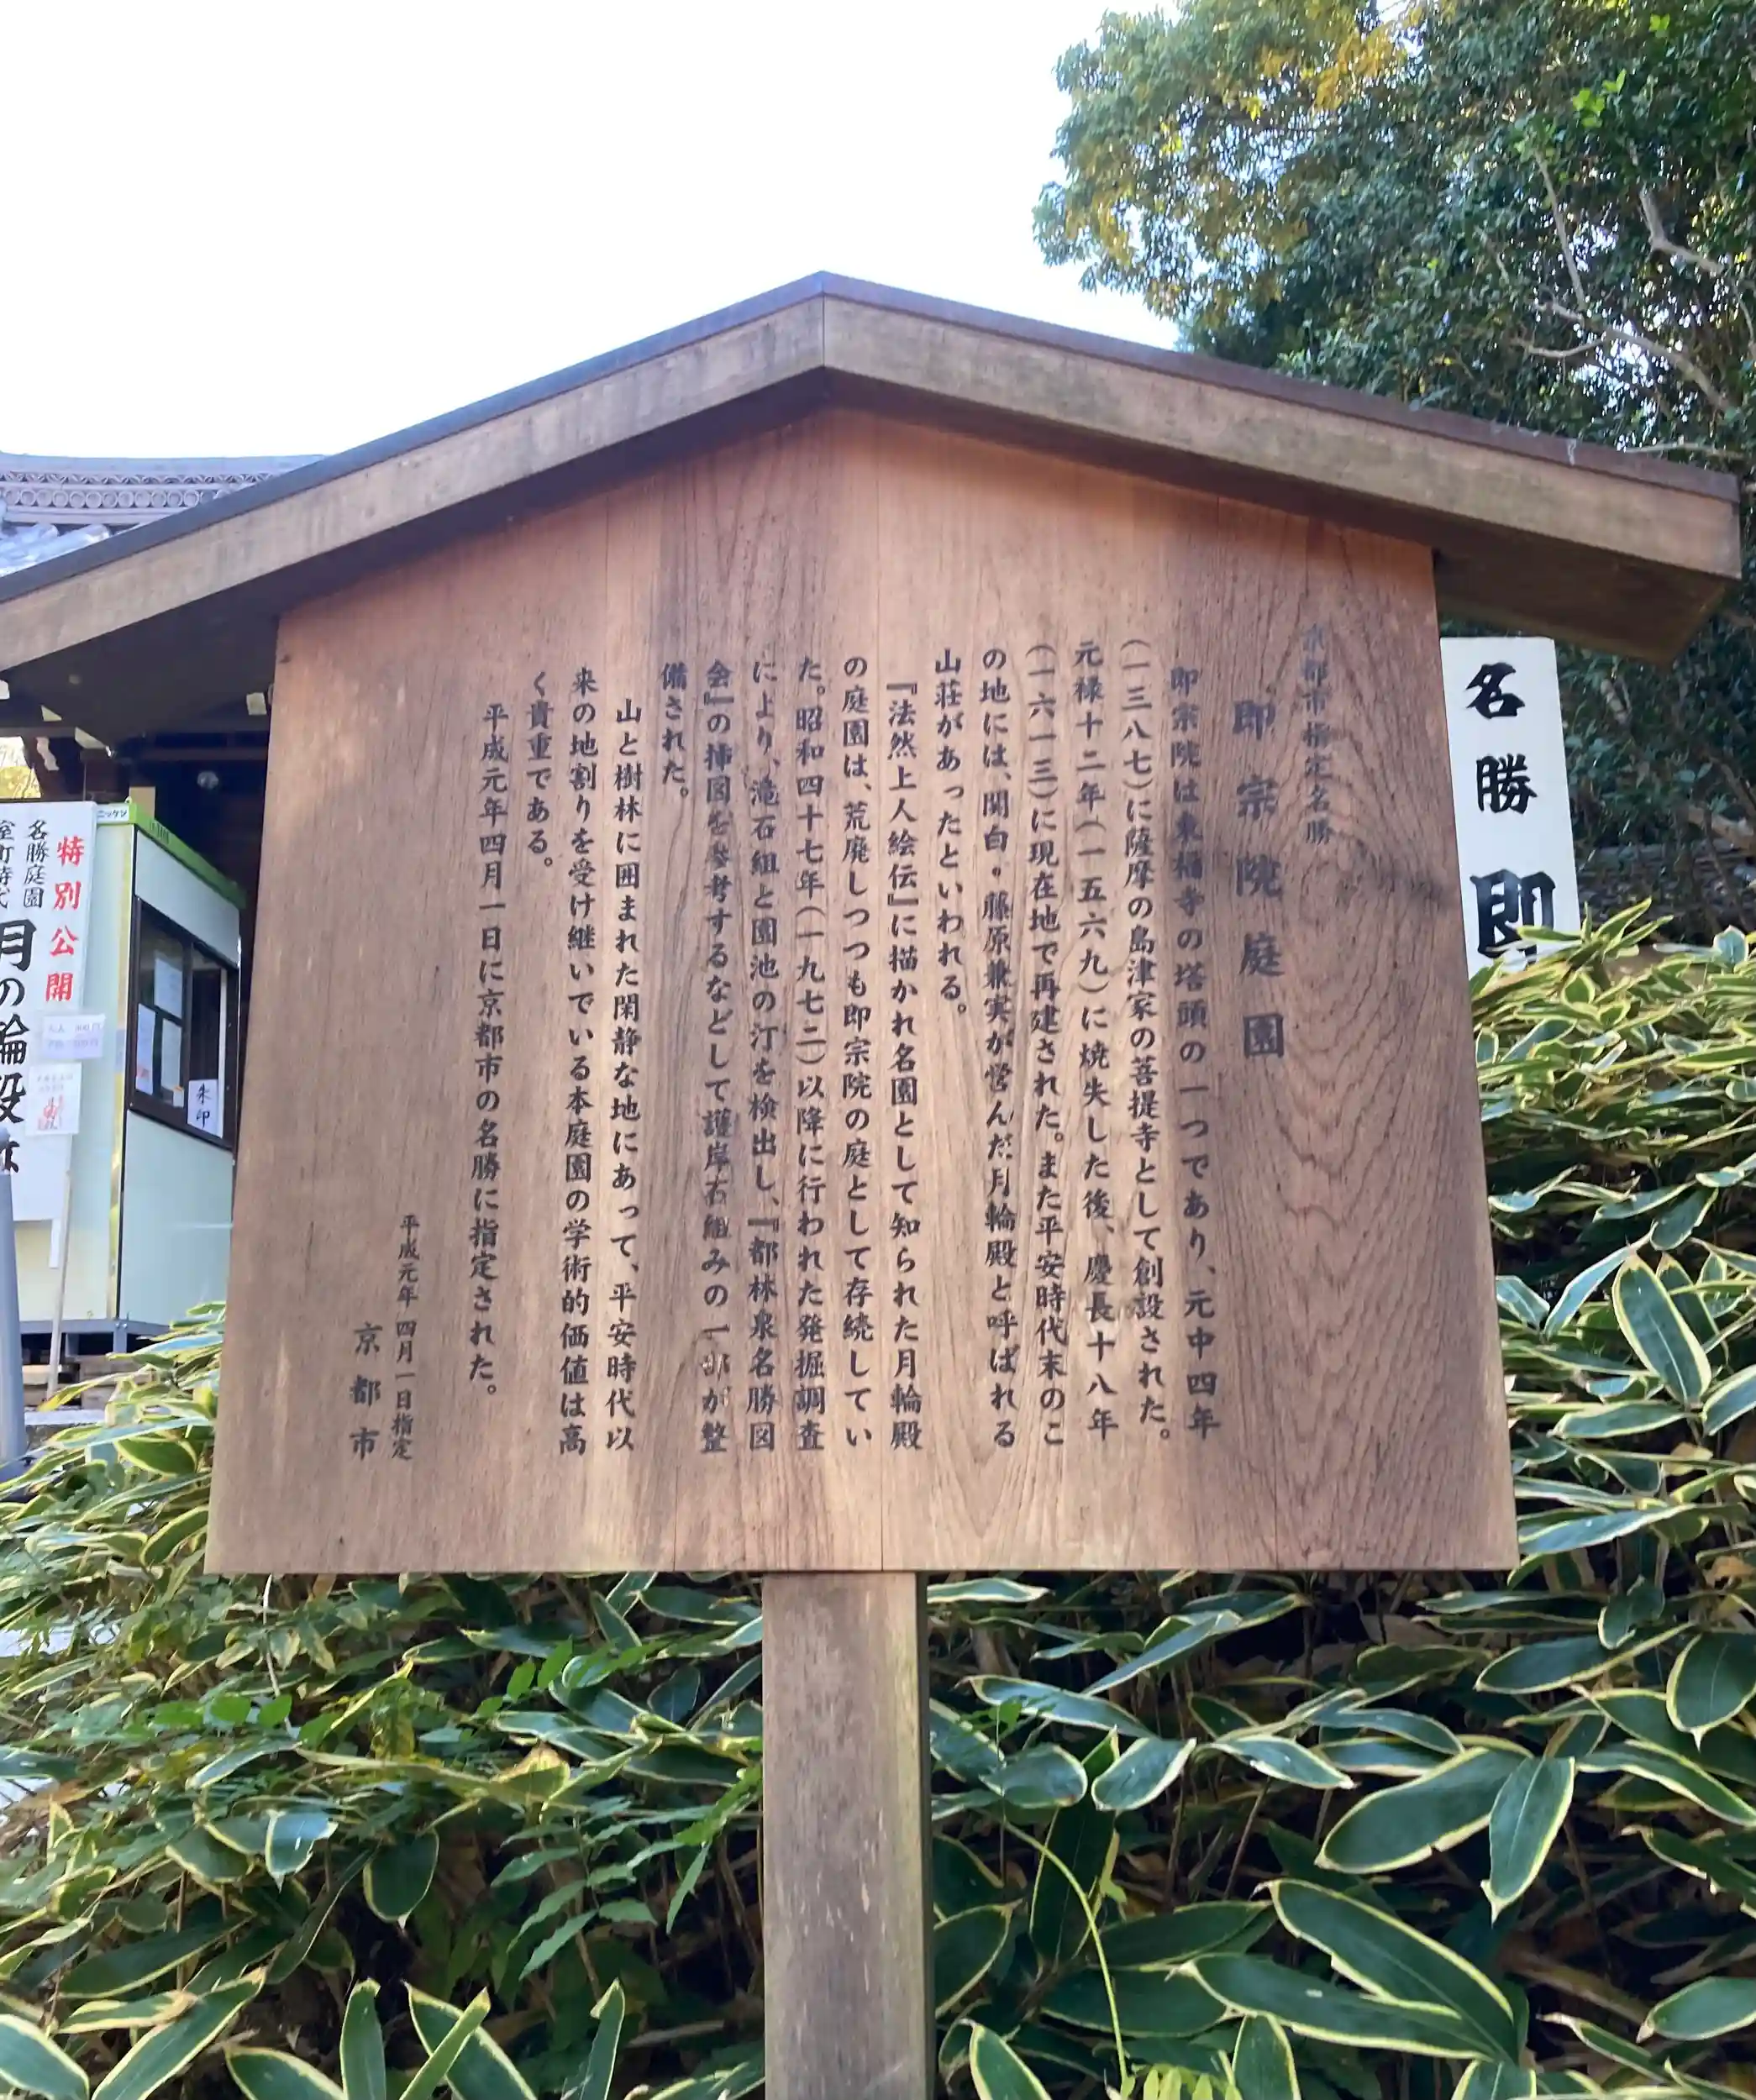 京都市指定名勝
即宗院庭園
即宗院は東福寺の塔頭の一つであり、元中四年
(一三八七)に薩摩の島津家の菩提寺として創設された。
元禄十二年(一五六九)に焼失した後、慶長十八年
(一六一三)に現在地で再建された。また平安時代末のこ
の地には、関白・藤原兼実が営んだ月輪殿と呼ばれる
山荘があったといわれる。
『法然上人絵伝』に描かれ名園として知られた月輪殿
の庭園は、荒廃しつつも即宗院の庭として存続してい
た。昭和四十七年(一九七二)以降に行われた発掘調査
により、滝石組と園池の汀を検出し、『都林泉名勝図
会』の挿図を参考するなどして護岸石組みの一部が整
備された。
山と樹林に囲まれた閑静な地にあって、平安時代以
来の地割りを受け継いでいる本庭園の学術的価値は高
く貴重である。
平成元年四月一日に京都市の名勝に指定された。
平成元年四月一日指定
京都市
名勝
即
特別公開
名勝庭園
室町時代
月の輪殿
朱印
ニッケン